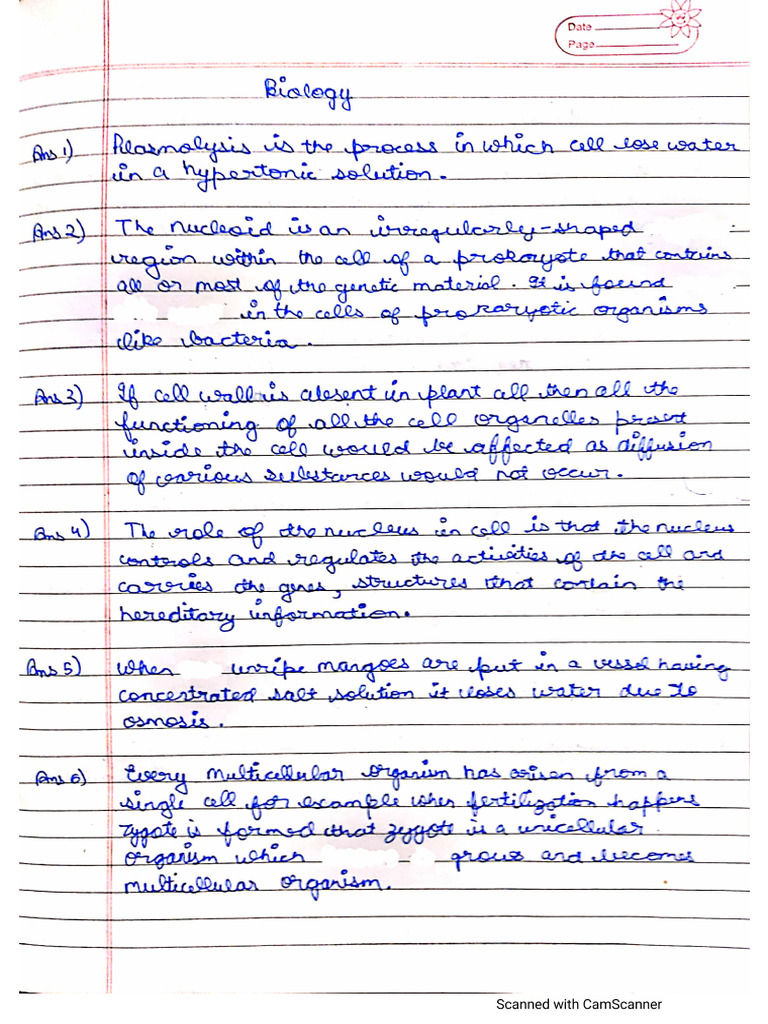 Date
Page
Biology
Ans 1) Plasmolysis is the process in which cell lose water
in a hypertonic solution.
Ans 2) The nucleoid is an irregularly-shaped
region within the cell of a prokaryote that contains
all or most of the genetic material. It is found
in the cells of prokaryotic organisms
like bacteria.
Ans 3) If cell wall is absent in plant cell then all the
functioning of all the cell organelles present
inside the cell would be affected as diffusion
of various substances would not occur.
Ans 4) The role of the nucleus in cell is that the nucleus
controls and regulates the activities of the cell and
carries the genes, structures that contain the
hereditary information.
Ans 5) When unripe mangoes are put in a vessel having
concentrated salt solution it loses water due to
osmosis.
Ans 6) Every multicellular organism has arisen from a
single cell for example when fertilization happens
zygote is formed that zygote is a unicellular
organism which grows and becomes
multicellular organism.
Scanned with CamScanner